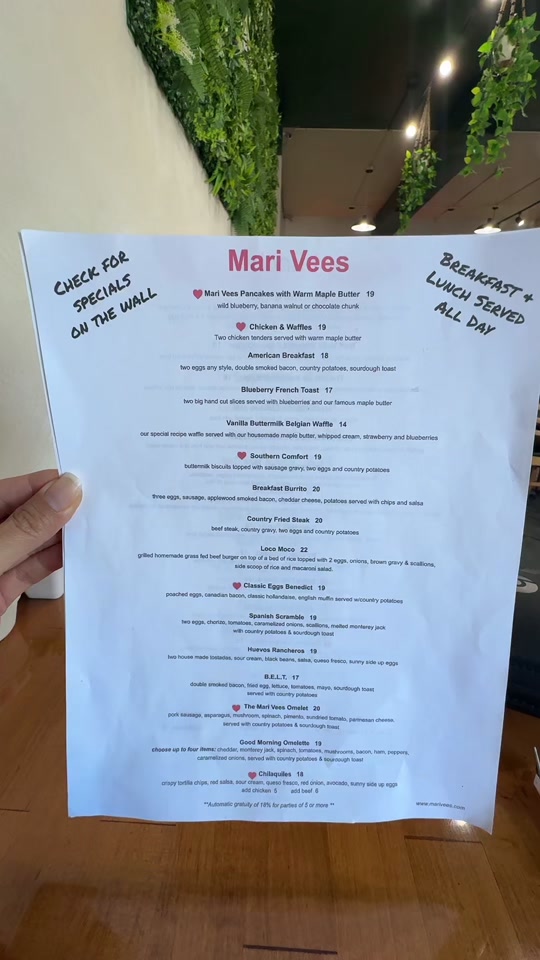 CHECK FOR
SPECIALS
ON THE WALL
Mari Vees
BREAKFAST +
LUNCH SERVED
ALL DAY
Mari Vees Pancakes with Warm Maple Butter 19
wild blueberry, banana walnut or chocolate chunk
Chicken & Waffles 19
Two chicken tenders served with warm maple butter
American Breakfast 18
two eggs any style, double smoked bacon, country potatoes, sourdough toast
Blueberry French Toast 17
two big hand cut slices served with blueberries and our famous maple butter
Vanilla Buttermilk Belgian Waffle 14
our special recipe waffle served with our housemade maple butter, whipped cream, strawberry and blueberries
Southern Comfort 19
buttermilk biscuits topped with sausage gravy, two eggs and country potatoes
Breakfast Burrito 20
three eggs, sausage, applewood smoked bacon, cheddar cheese, potatoes served with chips and salsa
Country Fried Steak 20
beef steak, country gravy, two eggs and country potatoes
Loco Moco 22
grilled homemade grass fed beef burger on top of a bed of rice topped with 2 eggs, onions, brown gravy & scallions,
side scoop of rice and macaroni salad.
Classic Eggs Benedict 19
poached eggs, canadian bacon, classic hollandaise, english muffin served w/country potatoes
Spanish Scramble 19
two eggs, chorizo, tomatoes, caramelized onions, scallions, melted monterey jack
with country potatoes & sourdough toast
Huevos Rancheros 19
two house made tostades, sour cream, black beans, salsa, queso fresco, sunny side up eggs
B.E.L.T. 17
double smoked bacon, fried egg, lettuce, tomatoes, mayo, sourdough toast
served with country potatoes
The Mari Vees Omelet 20
pork sausage, asparagus, mushroom, spinach, pimento, sundried tomato, parmesan cheese,
served with country potatoes & sourdough toast
Good Morning Omelette 19
choose up to four items: cheddar, monterey jack, spinach, tomatoes, mushrooms, bacon, ham, peppers,
caramelized onions, served with country potatoes & sourdough toast
Chilaquiles 18
crispy tortilla chips, red salsa, sour cream, queso fresco, red onion, avocado, sunny side up eggs
add chicken 5 add beef 6
**Automatic gratuity of 18% for parties of 5 or more **
www.marivees.com